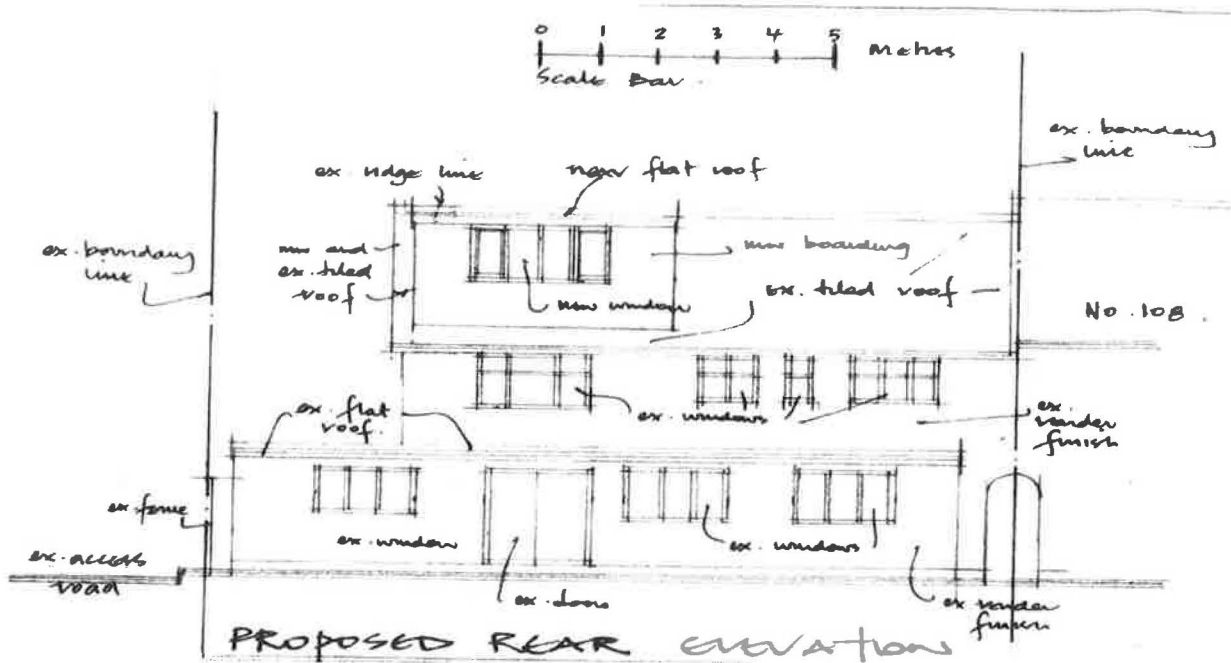 0 1 2 3 4 5 Metres
Scale Bar
ex. boundary
line
ex. ridge line
new flat roof
ex. boundary
line
new end
ex. tiled
roof
new window
new boarding
ex. tiled roof
No. 108
ex. flat
roof.
ex. windows
ex.
render
finish
ex. fence
ex. window
ex. windows
ex. access
road
ex. doors
ex render
finish
PROPOSED REAR ELEVATION